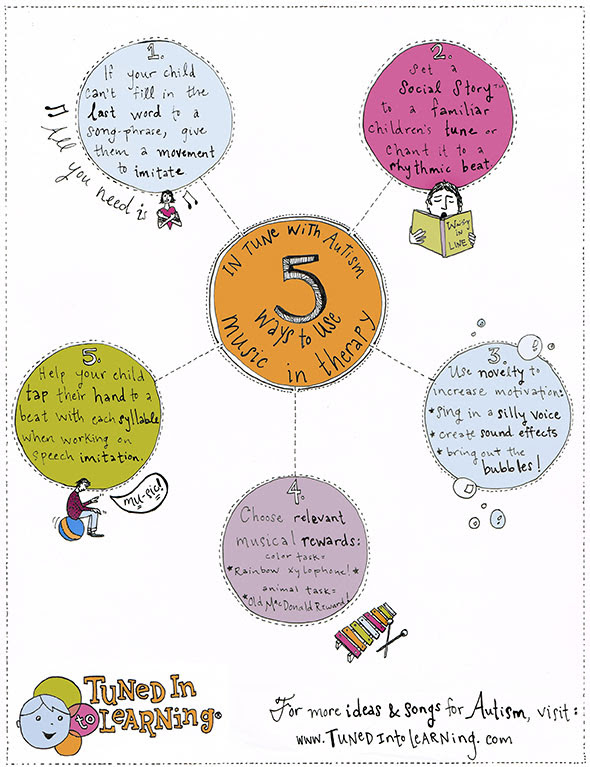 IN TUNE WITH AUTISM
5
ways to use
music in therapy
1.
If your child
can't fill in the
last word to a
song-phrase, give
them a movement
to imitate
All you need is
2.
Set a
Social Story™
to a familiar
children's tune or
chant it to a
rhythmic beat.
Waiting
in
LINE
3.
Use novelty to
increase motivation:
*sing in a silly voice
*create sound effects
*bring out the
bubbles!
4.
Choose relevant
musical rewards:
color task=
*Rainbow xylophone!*
animal task=
*Old MacDonald Reward!
5.
Help your child
tap their hand to a
beat with each syllable
when working on
speech imitation.
mu-sic!
TUNED IN
to
LEARNING®
For more ideas & songs for Autism, visit:
www.TUNEDINtoLEARNING.com